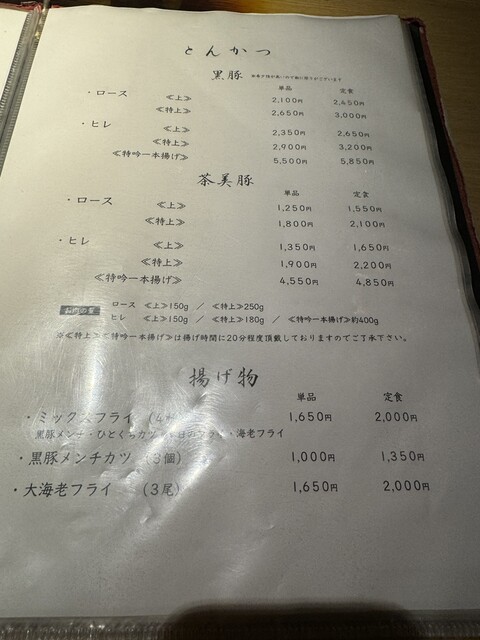 とんかつ
黒豚
単品 定食
・ロース ≪上≫ 2,100円 2,450円
≪特上≫ 2,650円 3,000円
・ヒレ ≪上≫ 2,350円 2,650円
≪特上≫ 2,900円 3,200円
≪特吟一本揚げ≫ 5,500円 5,850円
茶美豚
単品 定食
・ロース ≪上≫ 1,250円 1,550円
≪特上≫ 1,800円 2,100円
・ヒレ ≪上≫ 1,350円 1,650円
≪特上≫ 1,900円 2,200円
≪特吟一本揚げ≫ 4,550円 4,850円
お肉の量 ロース ≪上≫150g / ≪特上≫250g
ヒレ ≪上≫150g / ≪特上≫180g / ≪特吟一本揚げ≫約400g
※≪特上≫≪特吟一本揚げ≫は揚げ時間に20分程度頂戴しておりますのでご了承下さい。
揚げ物
単品 定食
・ミックスフライ (4 1,650円 2,000円
黒豚メンチ・ひとくちカツ 日のフライ・海老フライ
・黒豚メンチカツ (3個) 1,000円 1,350円
・大海老フライ (3尾) 1,650円 2,000円